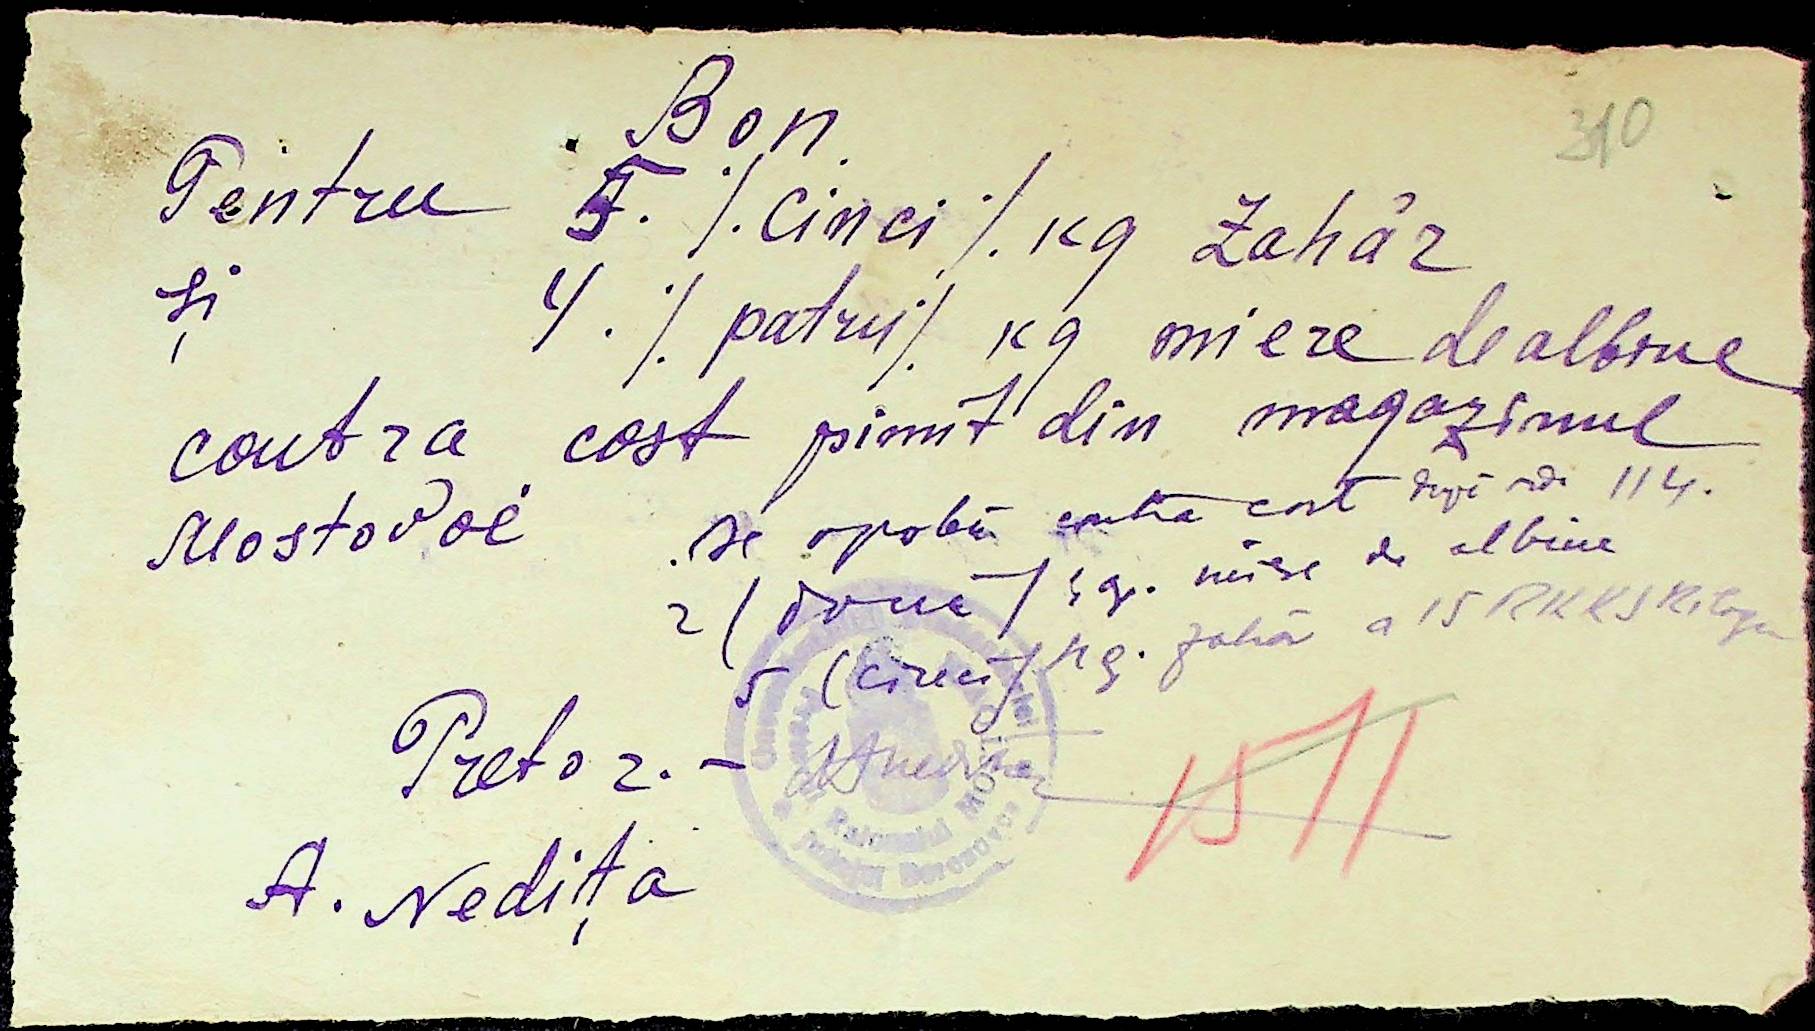 310
Bon.
Pentru 5. ·/. Cinci ·/. kg Zahăr
și 4. ·/. patru ·/. kg miere de albine
contra cost pimit din magazinul
Mostovoi
se aprobă contra cost după 114.
2 (două) kg. miere de albine
5 (cinci) kg. zahăr a 15 RKKS
Pretor. -
A. Nedița
Raionului
Județul Berezovca
15/11